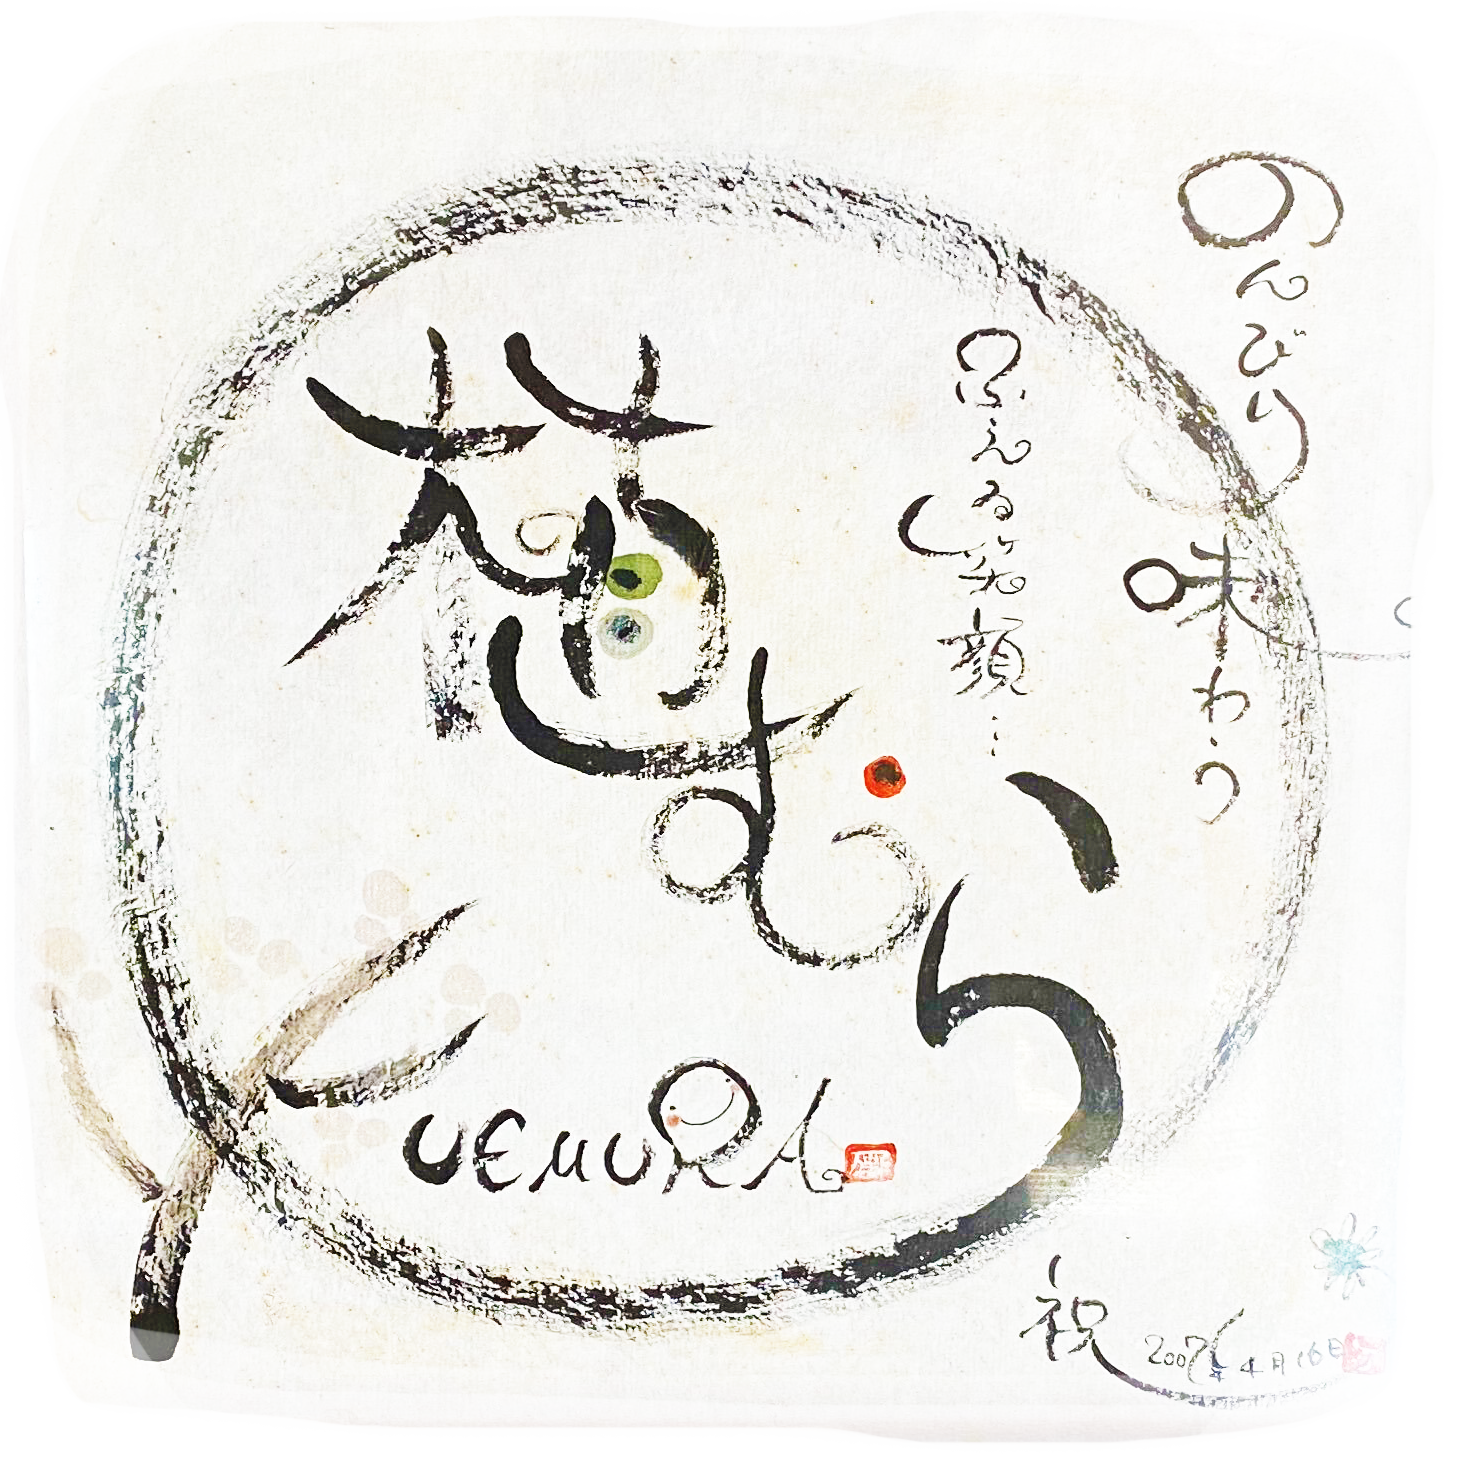 のんびり
味わう
ふえる笑顔…
植むら
UEMURA
祝 2007年4月16日